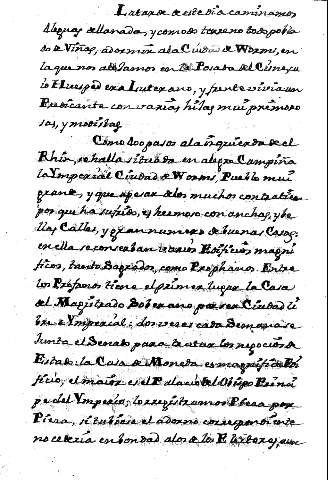 La tarde de este dia caminamos
4 leguas de llanada, y como de terreno todo pobla
do de Viñas, a dormir a la Ciudad de Worms, en
la que nos alojamos en la Posada del Cisne, cu
io Huesped era Luterano, y frente vivia un
Predicante con varias hijas mui primoro
sas, y modestas
Como 400 pasos a la izquierda de el
Rhin, se halla situada en alegre Campiña
la Ymperial Ciudad de Worms, Pueblo mui
grande, y que apesar de los muchos contratiem
pos que ha sufrido, es hermoso con anchas, y be
llas Calles, y gran numero de buenas Casas:
en ella se conserban varios Edificios magni
ficos, tanto Sagrados, como Prophanos. Entre
los Profanos tiene el primer lugar la Casa
del Magistrado Soberano por ser Ciudad li
bre e Ymperial: dos veces cada Semana se
Junta el Senato para tratar los negocios de
Estado: la Casa de Moneda es magnifico Edi
ficio, el maior es el Palacio del Obispo Princi
pe del Ymperio; lo registramos Pieza por
Pieza, si tubiese el adorno correspondiente
no cederia en bondad a los de los Electores, aun